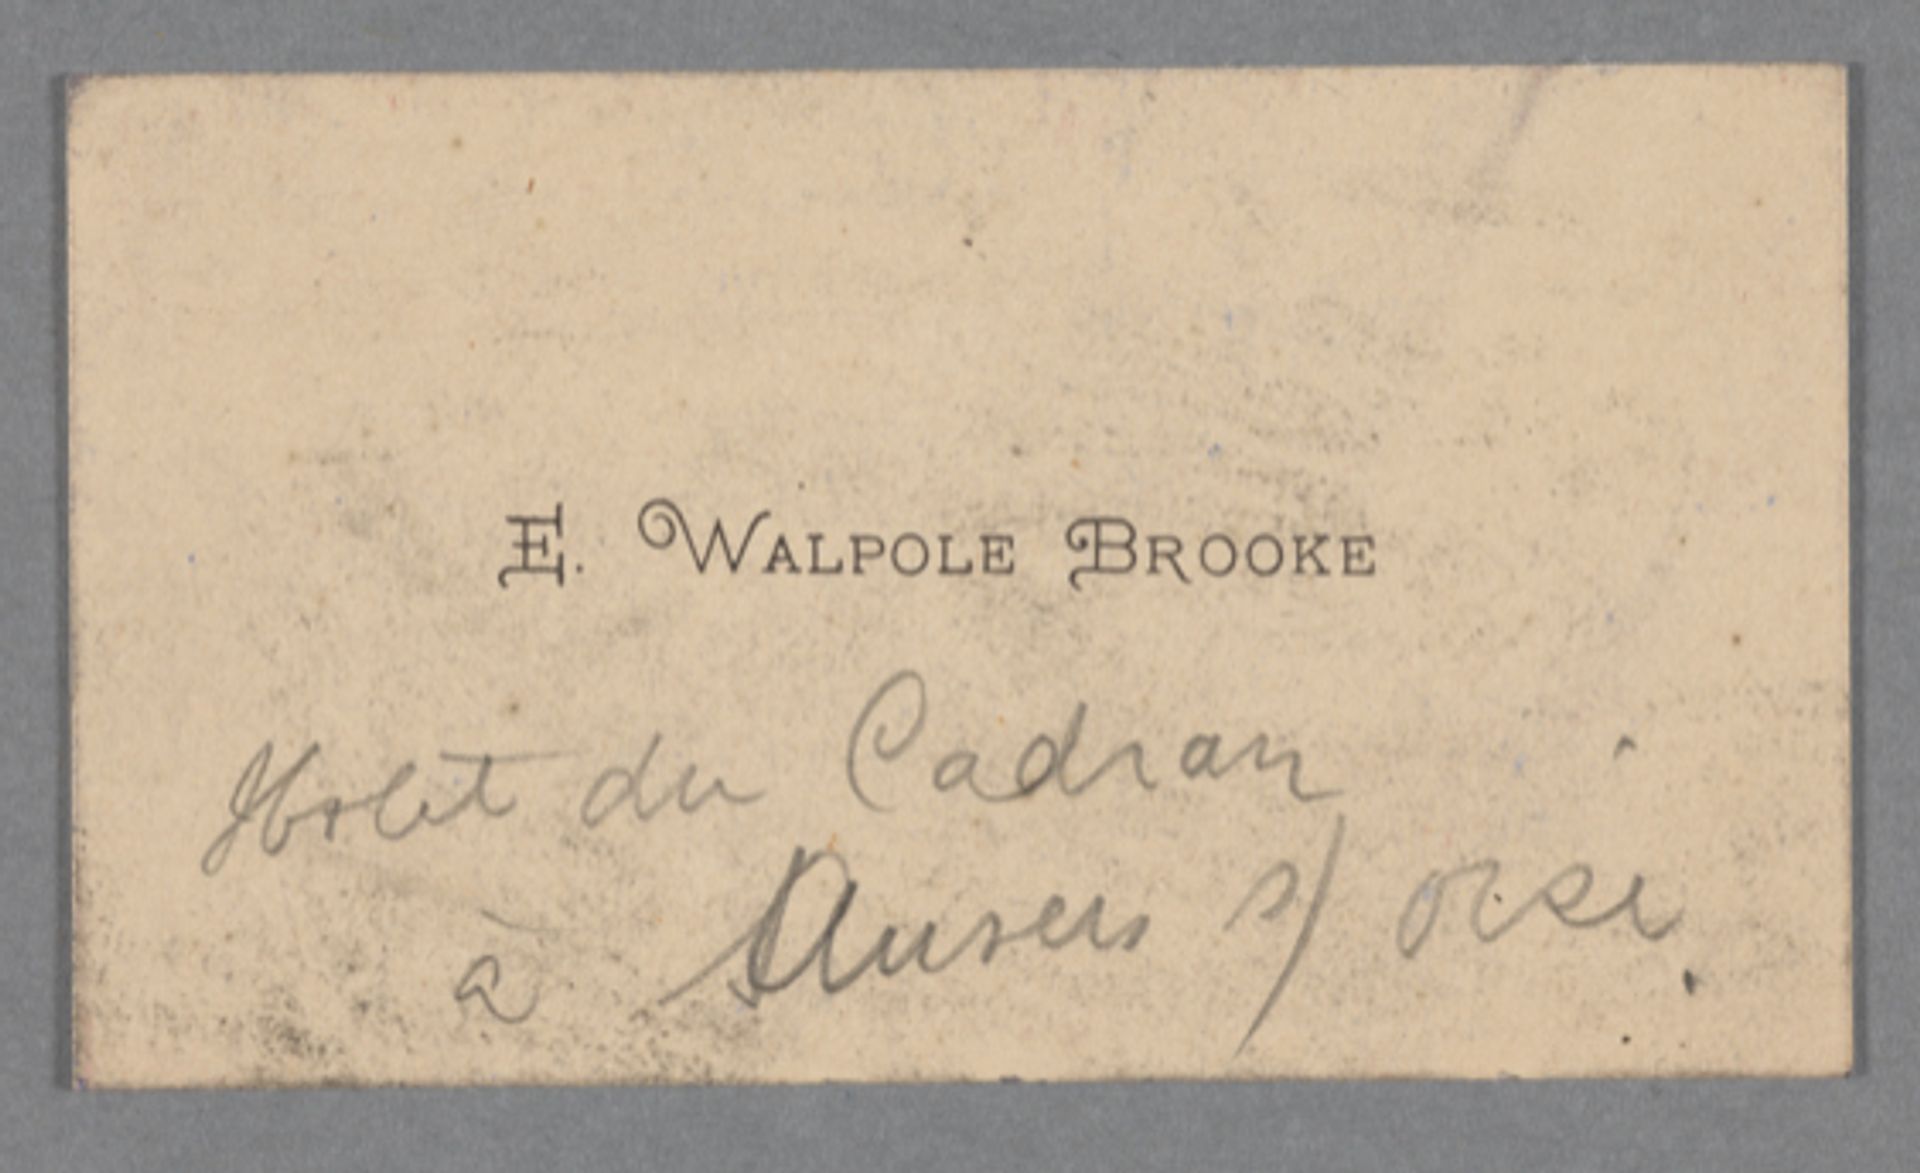 E. WALPOLE BROOKE
Hotel du Cadran
à Auvers s/ oise.